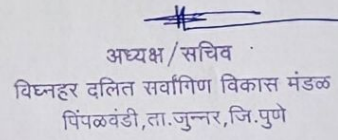 अध्यक्ष/सचिव
विघ्नहर दलित सर्वांगिण विकास मंडळ
पिंपळवंडी,ता.जुन्नर,जि.पुणे